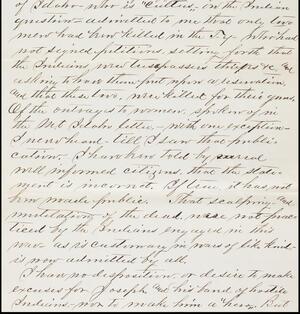 of Idaho who is "Cultus, on the Indian
question — admitted to me that only two
men has been killed in the Ty. who had
not signed petitions, setting forth that
the Indians were trespassers thieves &c and
asking to have them put upon a reservation
and that these two, were killed for their guns.
Of the outrages to women, spoken of in
the Mt Idaho letter, with one exception —
I never heard — till I saw that publi-
cation. I have been told by several
well informed citizens, that the state-
ment is incorrect. If true, it has not
been made public. That scalping and
mutilation of the dead was not prac-
ticed by the Indians engaged in this
war as is customary in wars of like kind —
is now admitted by all.
I have no disposition, or desire to make
excuses for Joseph and his band of hostile
Indians — nor to make him a "hero, But